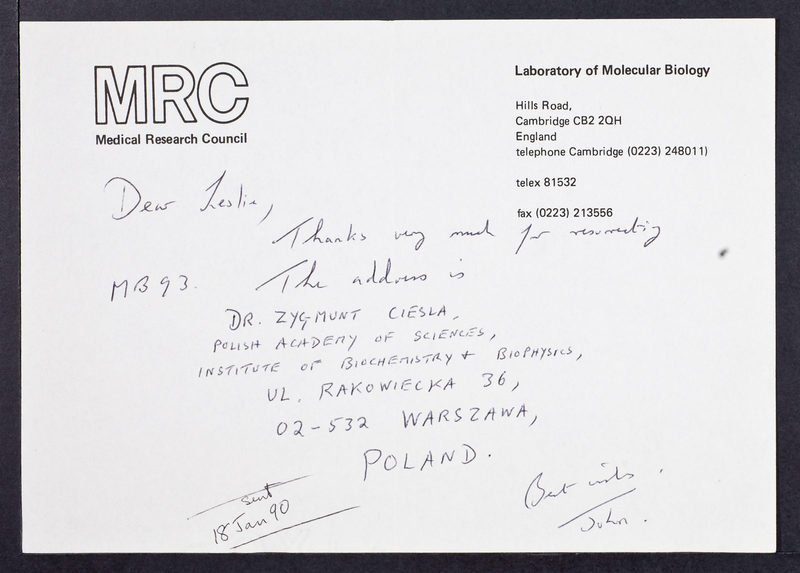 MRC
Medical Research Council
Laboratory of Molecular Biology
Hills Road,
Cambridge CB2 2QH
England
telephone Cambridge (0223) 248011)
telex 81532
fax (0223) 213556
Dear Leslie,
Thanks very much for resurrecting
MB93. The address is
DR. ZYGMUNT CIESLA,
POLISH ACADEMY OF SCIENCES,
INSTITUTE OF BIOCHEMISTRY + BIOPHYSICS,
UL. RAKOWIECKA 36,
02-532 WARSZAWA,
POLAND.
Best wishes.
John.
sent
18 Jan 90